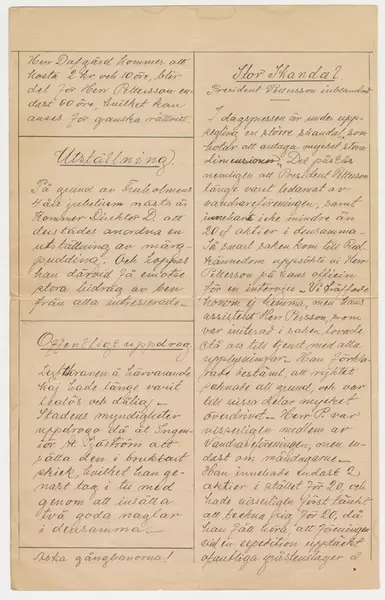 Herr Dafgård kommer att
kosta 2 Kr. och 10 öre, blir
det för Herr Pettersson en-
dast 60 öre, hvilket kan
anses för ganska rättvist.
Utställning.
På grund av Fruholmens
4 års jubileum nästa år
kommer Direktör D. att
derstädes anordna en
utställning av märg-
pudding. Och hoppas
han därvid få emotse
stora bidrag av ben
från alla intresserade.
Offentligt uppdrag
Lyktfararen å härvarande
kaj hade länge varit
skalös och dålig.
Stadens myndigheter
uppdrogo då åt Ingen-
iör At. Sjöström att
sätta den i brukbart
skick, hvilket han ge-
nast tog i tu med
genom att insätta
två goda naglar
i densamma.
Aska gångbanorna!
Stor Skandal.
President Pettersson inblandad
I dagspressen är under upp-
segling en större skandal, som
hotar att antaga mycket stora
dimensioner. Det påstås
nemligen att President Pettersson
länge varit ledamot av
vandrareföreningen, samt
innehaft icke mindre än
20 st aktier i densamma.
Så snart saken kom till Red.
kännedom uppsökte vi Herr
Pettersson på hans officin
för en intervue. Vi träffade
honom ej hemma, men hans
assistent Herr Persson, som
var initierad i saken, lovade
stå oss till tjenst med alla
upplysningar. Han förkla-
rade bestämt, att ryktet
saknade all grund, och var
till vissa delar mycket
överdrivet. Herr P. var
visserligen medlem av
Vandrareföreningen, men en-
dast om måndagarne.
Han innehade endast 2
aktier i stället för 20, och
hade visserligen först tänkt
att teckna sig för 20, då
han fått höra, att föreningen
vid en expedition upptäckt
ofantliga gråstenslager å